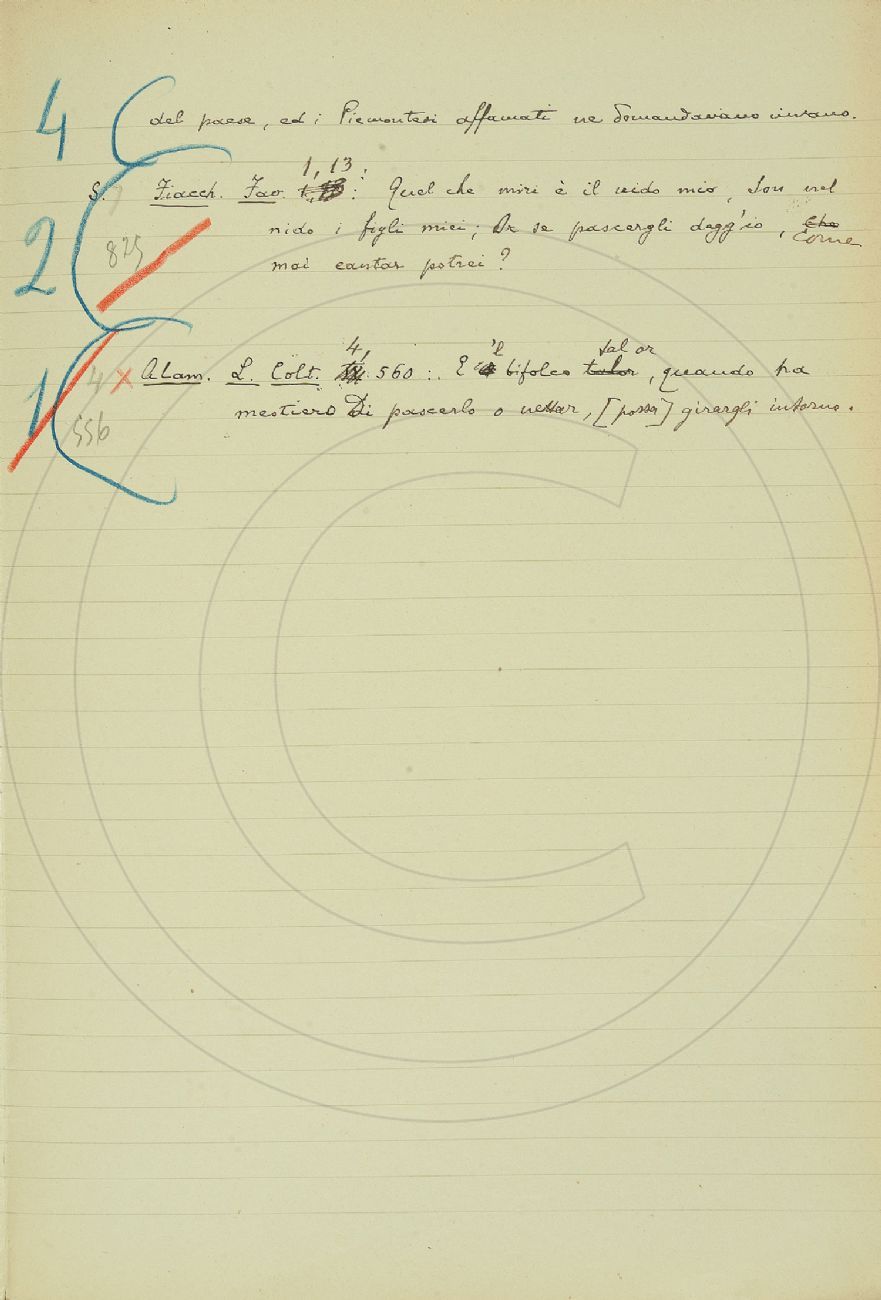 4 del paese, ed i Piemontesi affamati ne domandavano invano.
1, 13,
S. Fiacch. Fav. : Quel che miri è il nido mio, Son nel
2 nido i figli miei; Or se pascergli degg'io, Che Come
825
mai cantar potrei?
4, 'l tal or
1 4 x Alam. L. Colt. 560: E bifolco talor, quando ha
556 mestiero Di pascerlo o nettar, [possa] girargli intorno.